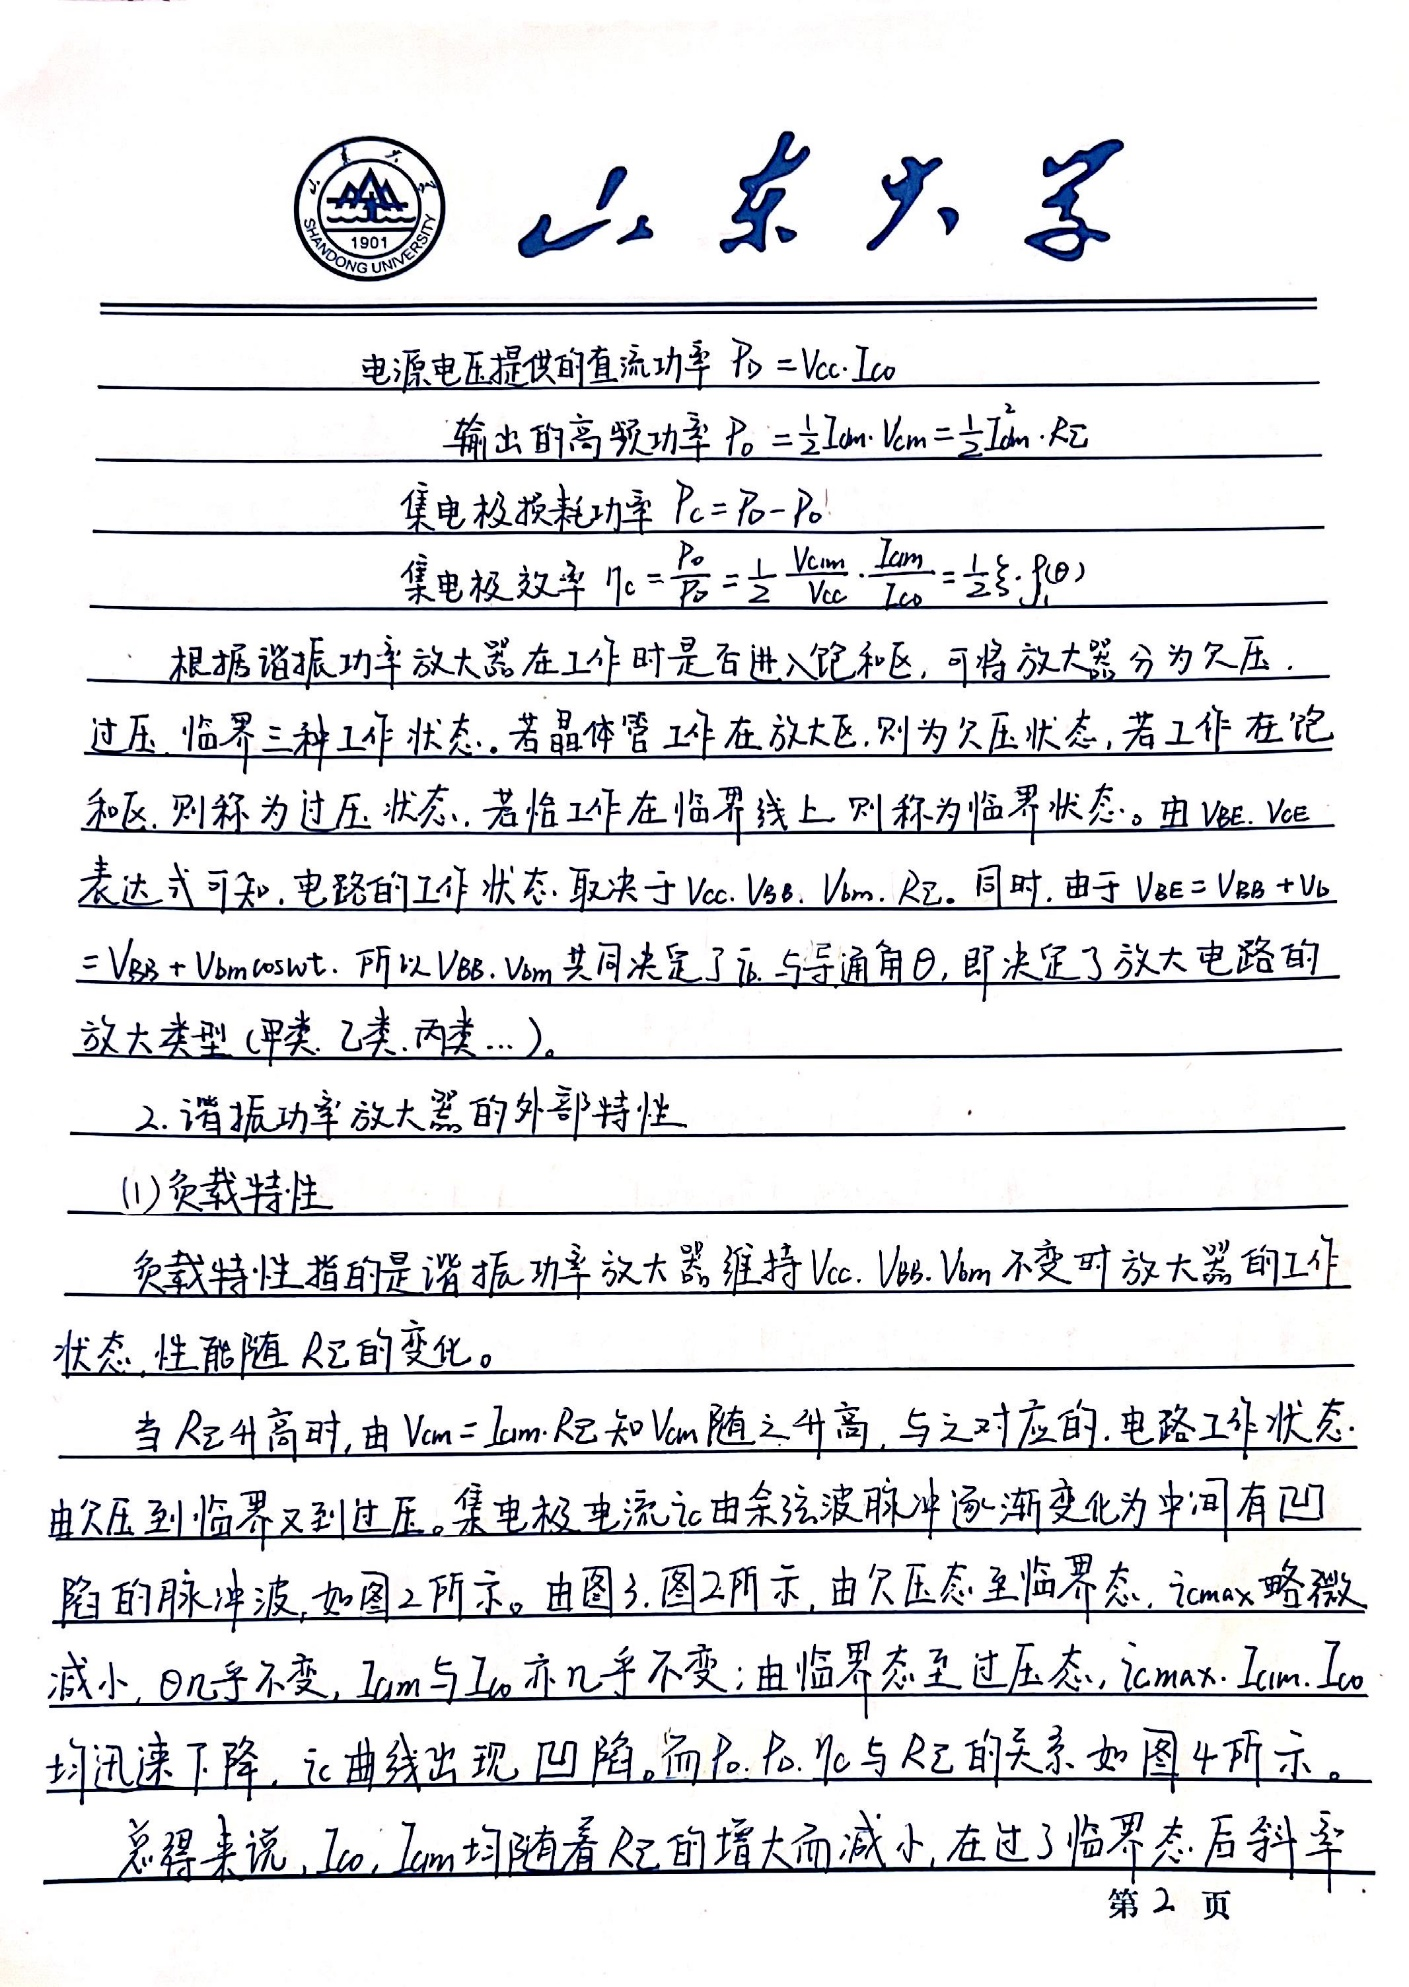 山东大学
山东大学
1901
SHANDONG UNIVERSITY
电源电压提供的直流功率 P_D = V_CC·I_C0
输出的高频功率 P_o = 1/2 I_c1m·V_cm = 1/2 I_c1m²·R_Σ
集电极损耗功率 P_C = P_D - P_o
集电极效率 η_C = P_o/P_D = 1/2 V_c1m/V_CC · I_c1m/I_C0 = 1/2 ξ·g_1(θ)
根据谐振功率放大器在工作时是否进入饱和区,可将放大器分为欠压.
过压.临界三种工作状态。若晶体管工作在放大区,则为欠压状态,若工作在饱
和区.则称为过压状态,若恰工作在临界线上 则称为临界状态。由V_BE. V_CE
表达式可知,电路的工作状态取决于V_CC. V_BB. V_bm. R_Σ。同时.由于V_BE = V_BB + V_b
= V_BB + V_bm cosωt. 所以V_BB. V_bm共同决定了i_b 与导通角θ,即决定了放大电路的
放大类型(甲类.乙类.丙类...)。
2.谐振功率放大器的外部特性
(1)负载特性
负载特性指的是谐振功率放大器维持V_CC. V_BB. V_bm不变时放大器的工作
状态,性能随R_Σ的变化。
当R_Σ升高时,由V_cm = I_c1m·R_Σ知V_cm随之升高,与之对应的,电路工作状态
由欠压到临界又到过压。集电极电流i_c由余弦波脉冲逐渐变化为中间有凹
陷的脉冲波,如图2所示。由图3.图2所示,由欠压态至临界态,i_cmax略微
减小,θ几乎不变,I_c1m与I_C0亦几乎不变;由临界态至过压态,i_cmax. I_c1m. I_C0
均迅速下降,i_c曲线出现凹陷。而P_o. P_D. η_C与R_Σ的关系如图4所示。
总得来说,I_C0,I_c1m均随着R_Σ的增大而减小,在过了临界态后斜率
第2页